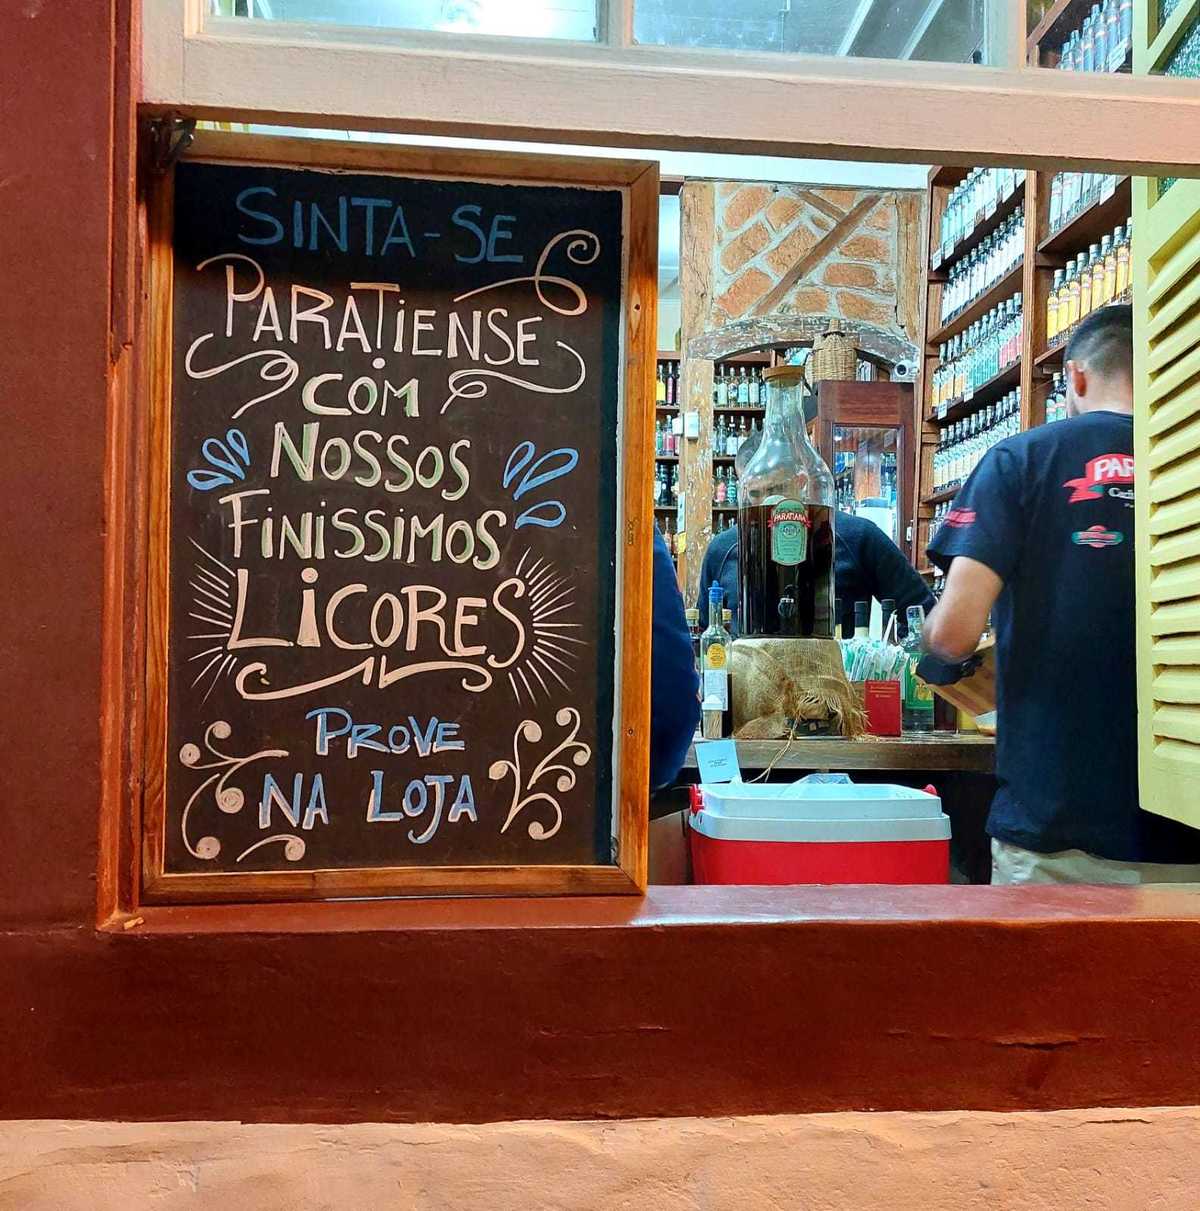 SINTA-SE
PARATIENSE
COM
NOSSOS
FINISSIMOS
LICORES
PROVE
NA LOJA
PARATIANA
PAR